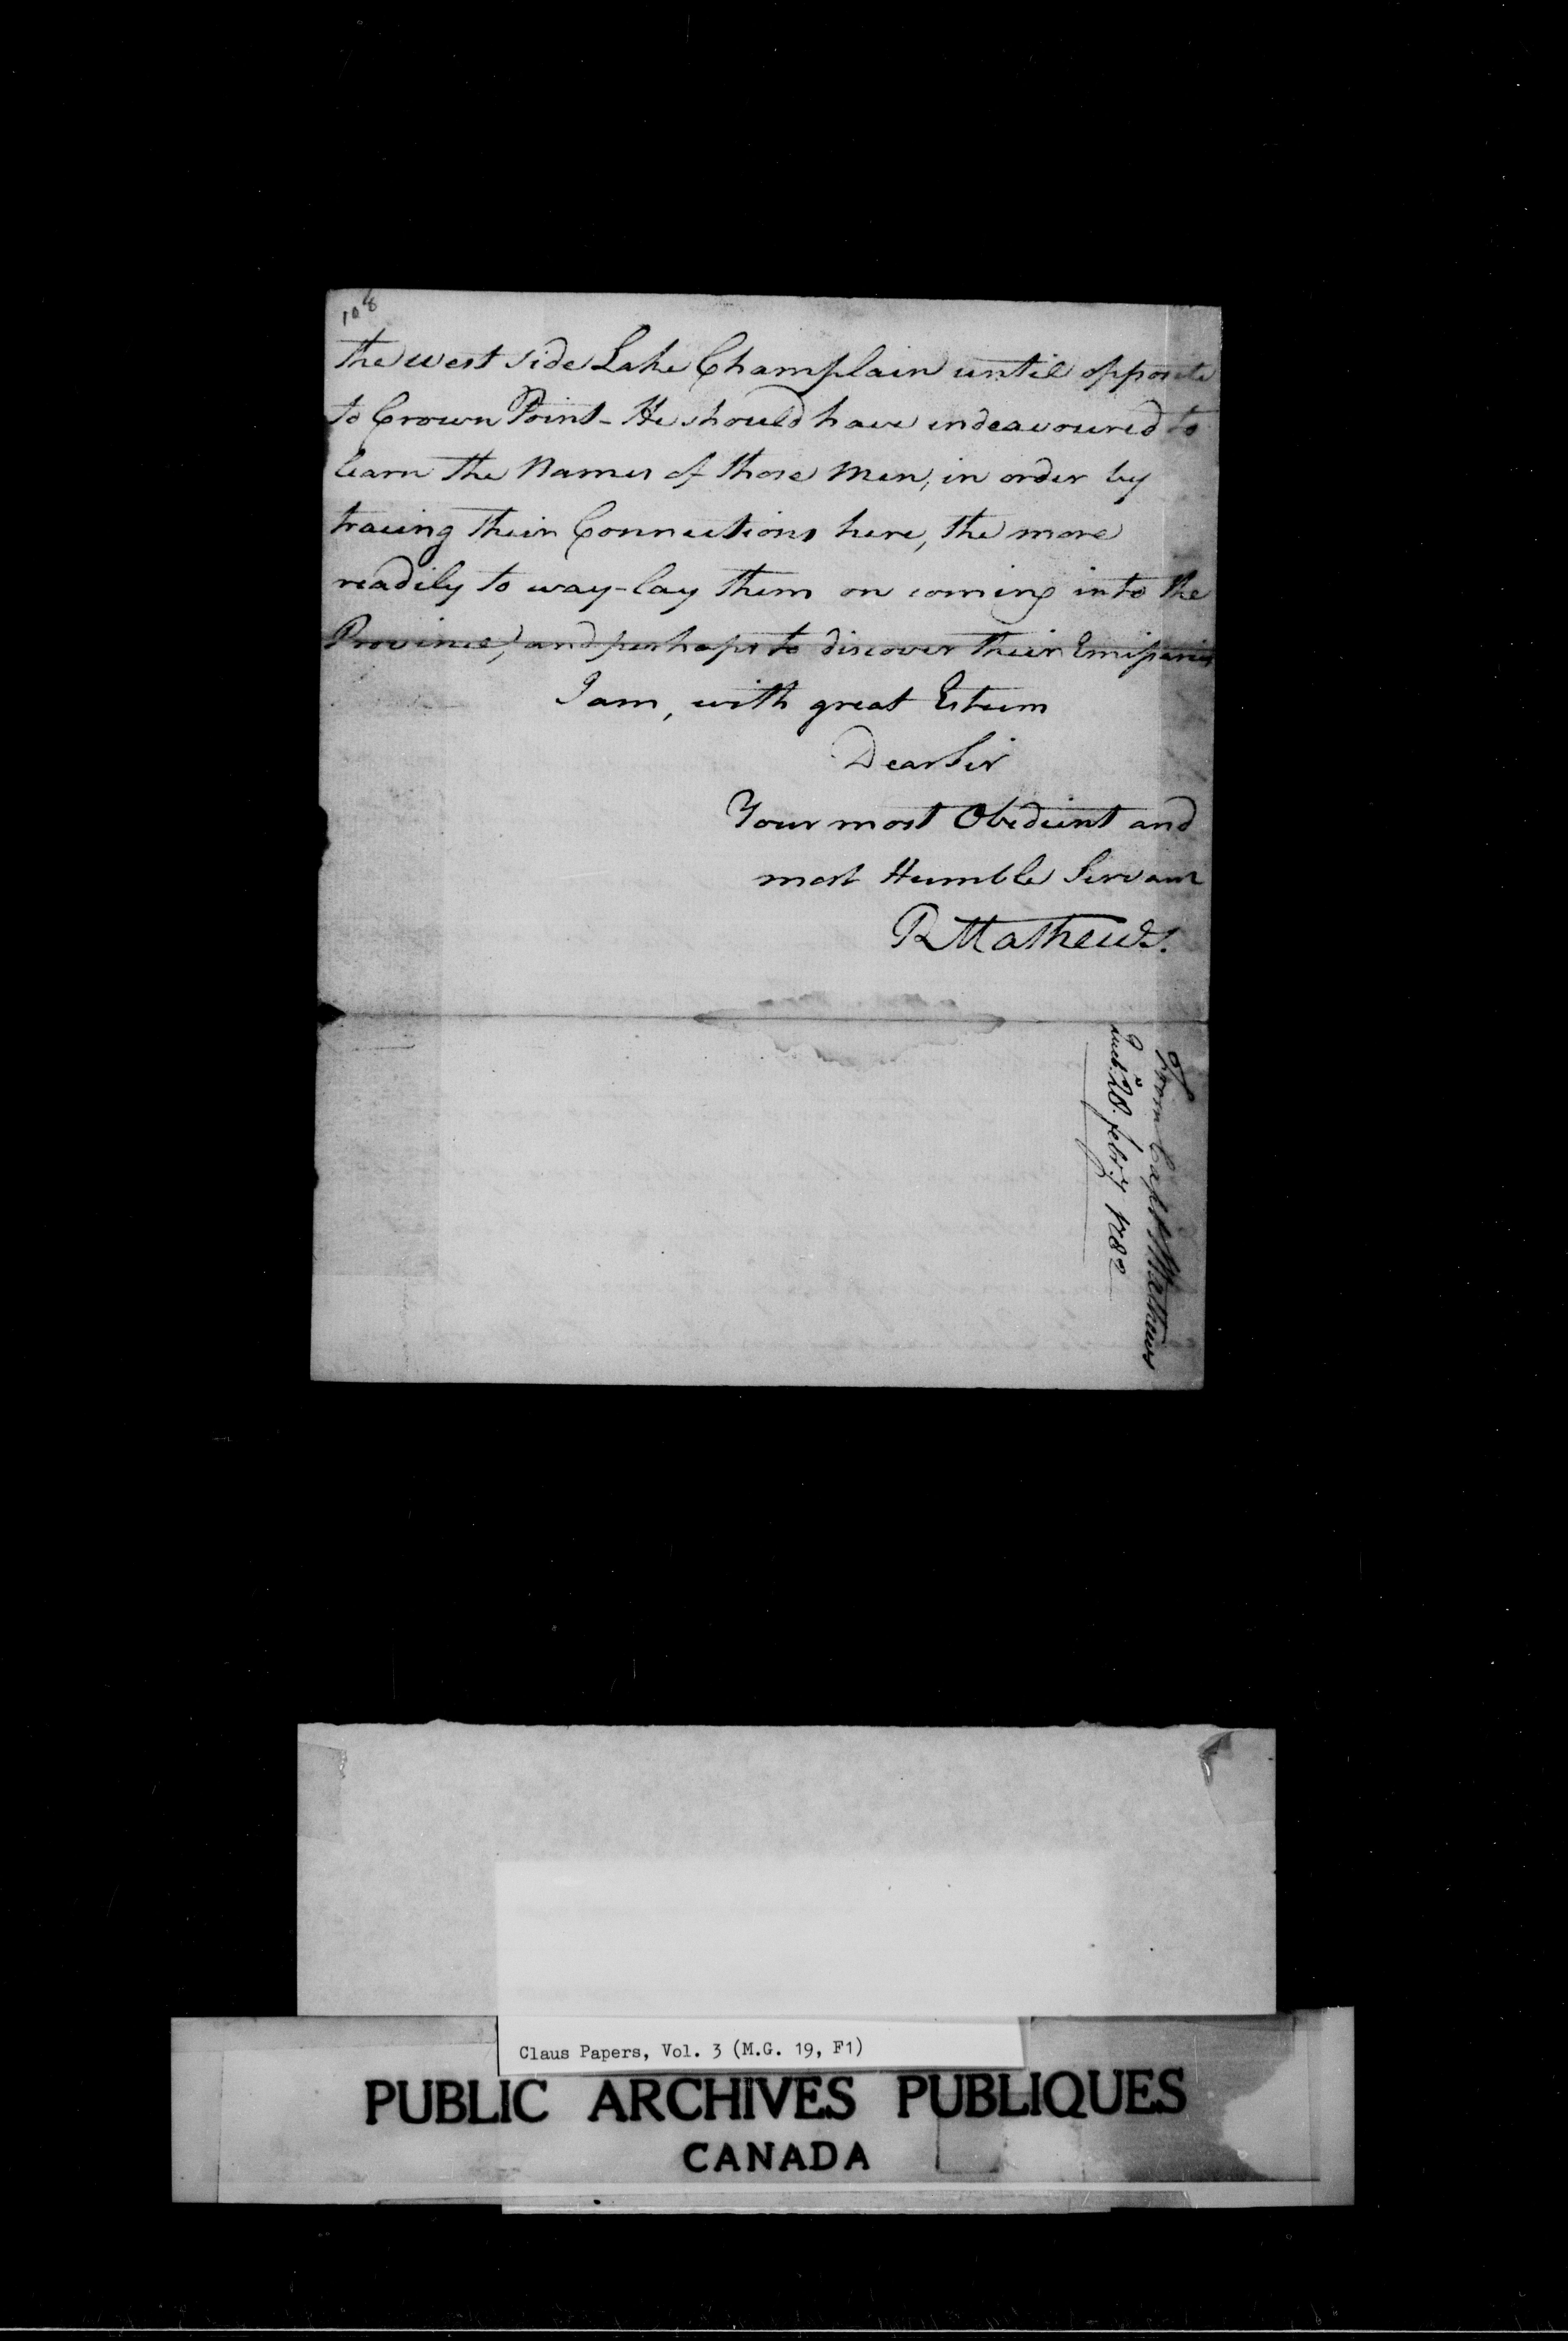 108
the west side Lake Champlain until opposite
to Crown Point - He should have endeavoured to
learn the Names of those Men, in order by
tracing their Connections here, the more
readily to way-lay them on coming into the
Province, and perhaps to discover their Emissaries
I am, with great Esteem
Dear Sir
Your most Obedient and
most Humble Servant
R Mathews.
From Capt Mathews
Queb. 28. febry 1782
Claus Papers, Vol. 3 (M.G. 19, F1)
PUBLIC ARCHIVES PUBLIQUES
CANADA